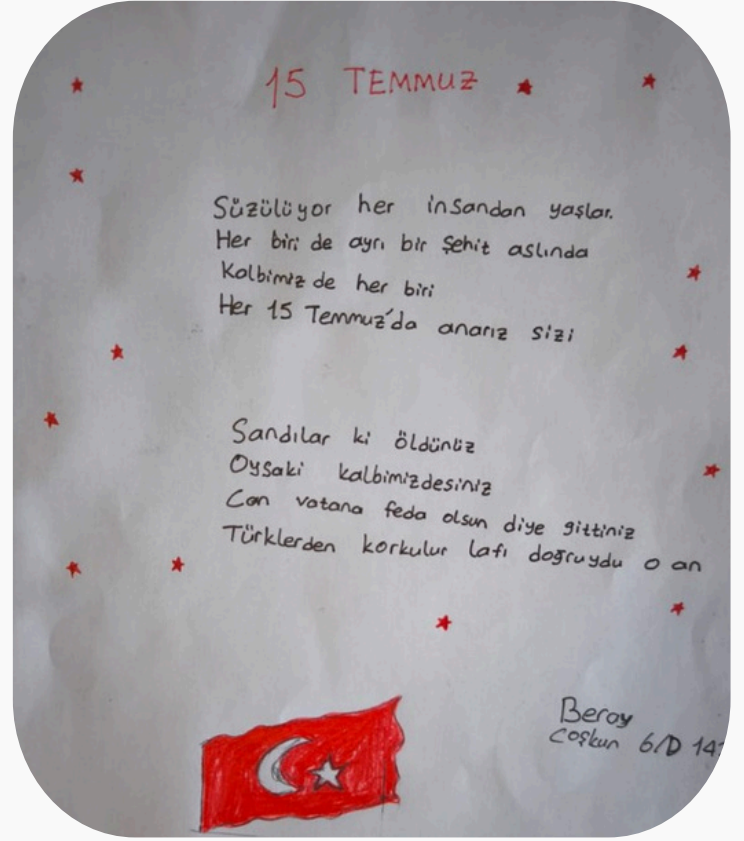 15 TEMMUZ
Süzülüyor her insandan yaşlar.
Her biri de ayrı bir şehit aslında
Kalbimizde her biri
Her 15 Temmuz'da anarız sizi
Sandılar ki öldünüz
Oysaki kalbimizdesiniz
Can vatana feda olsun diye gittiniz
Türklerden korkulur lafı doğruydu o an
Beray
Coşkun 6/D